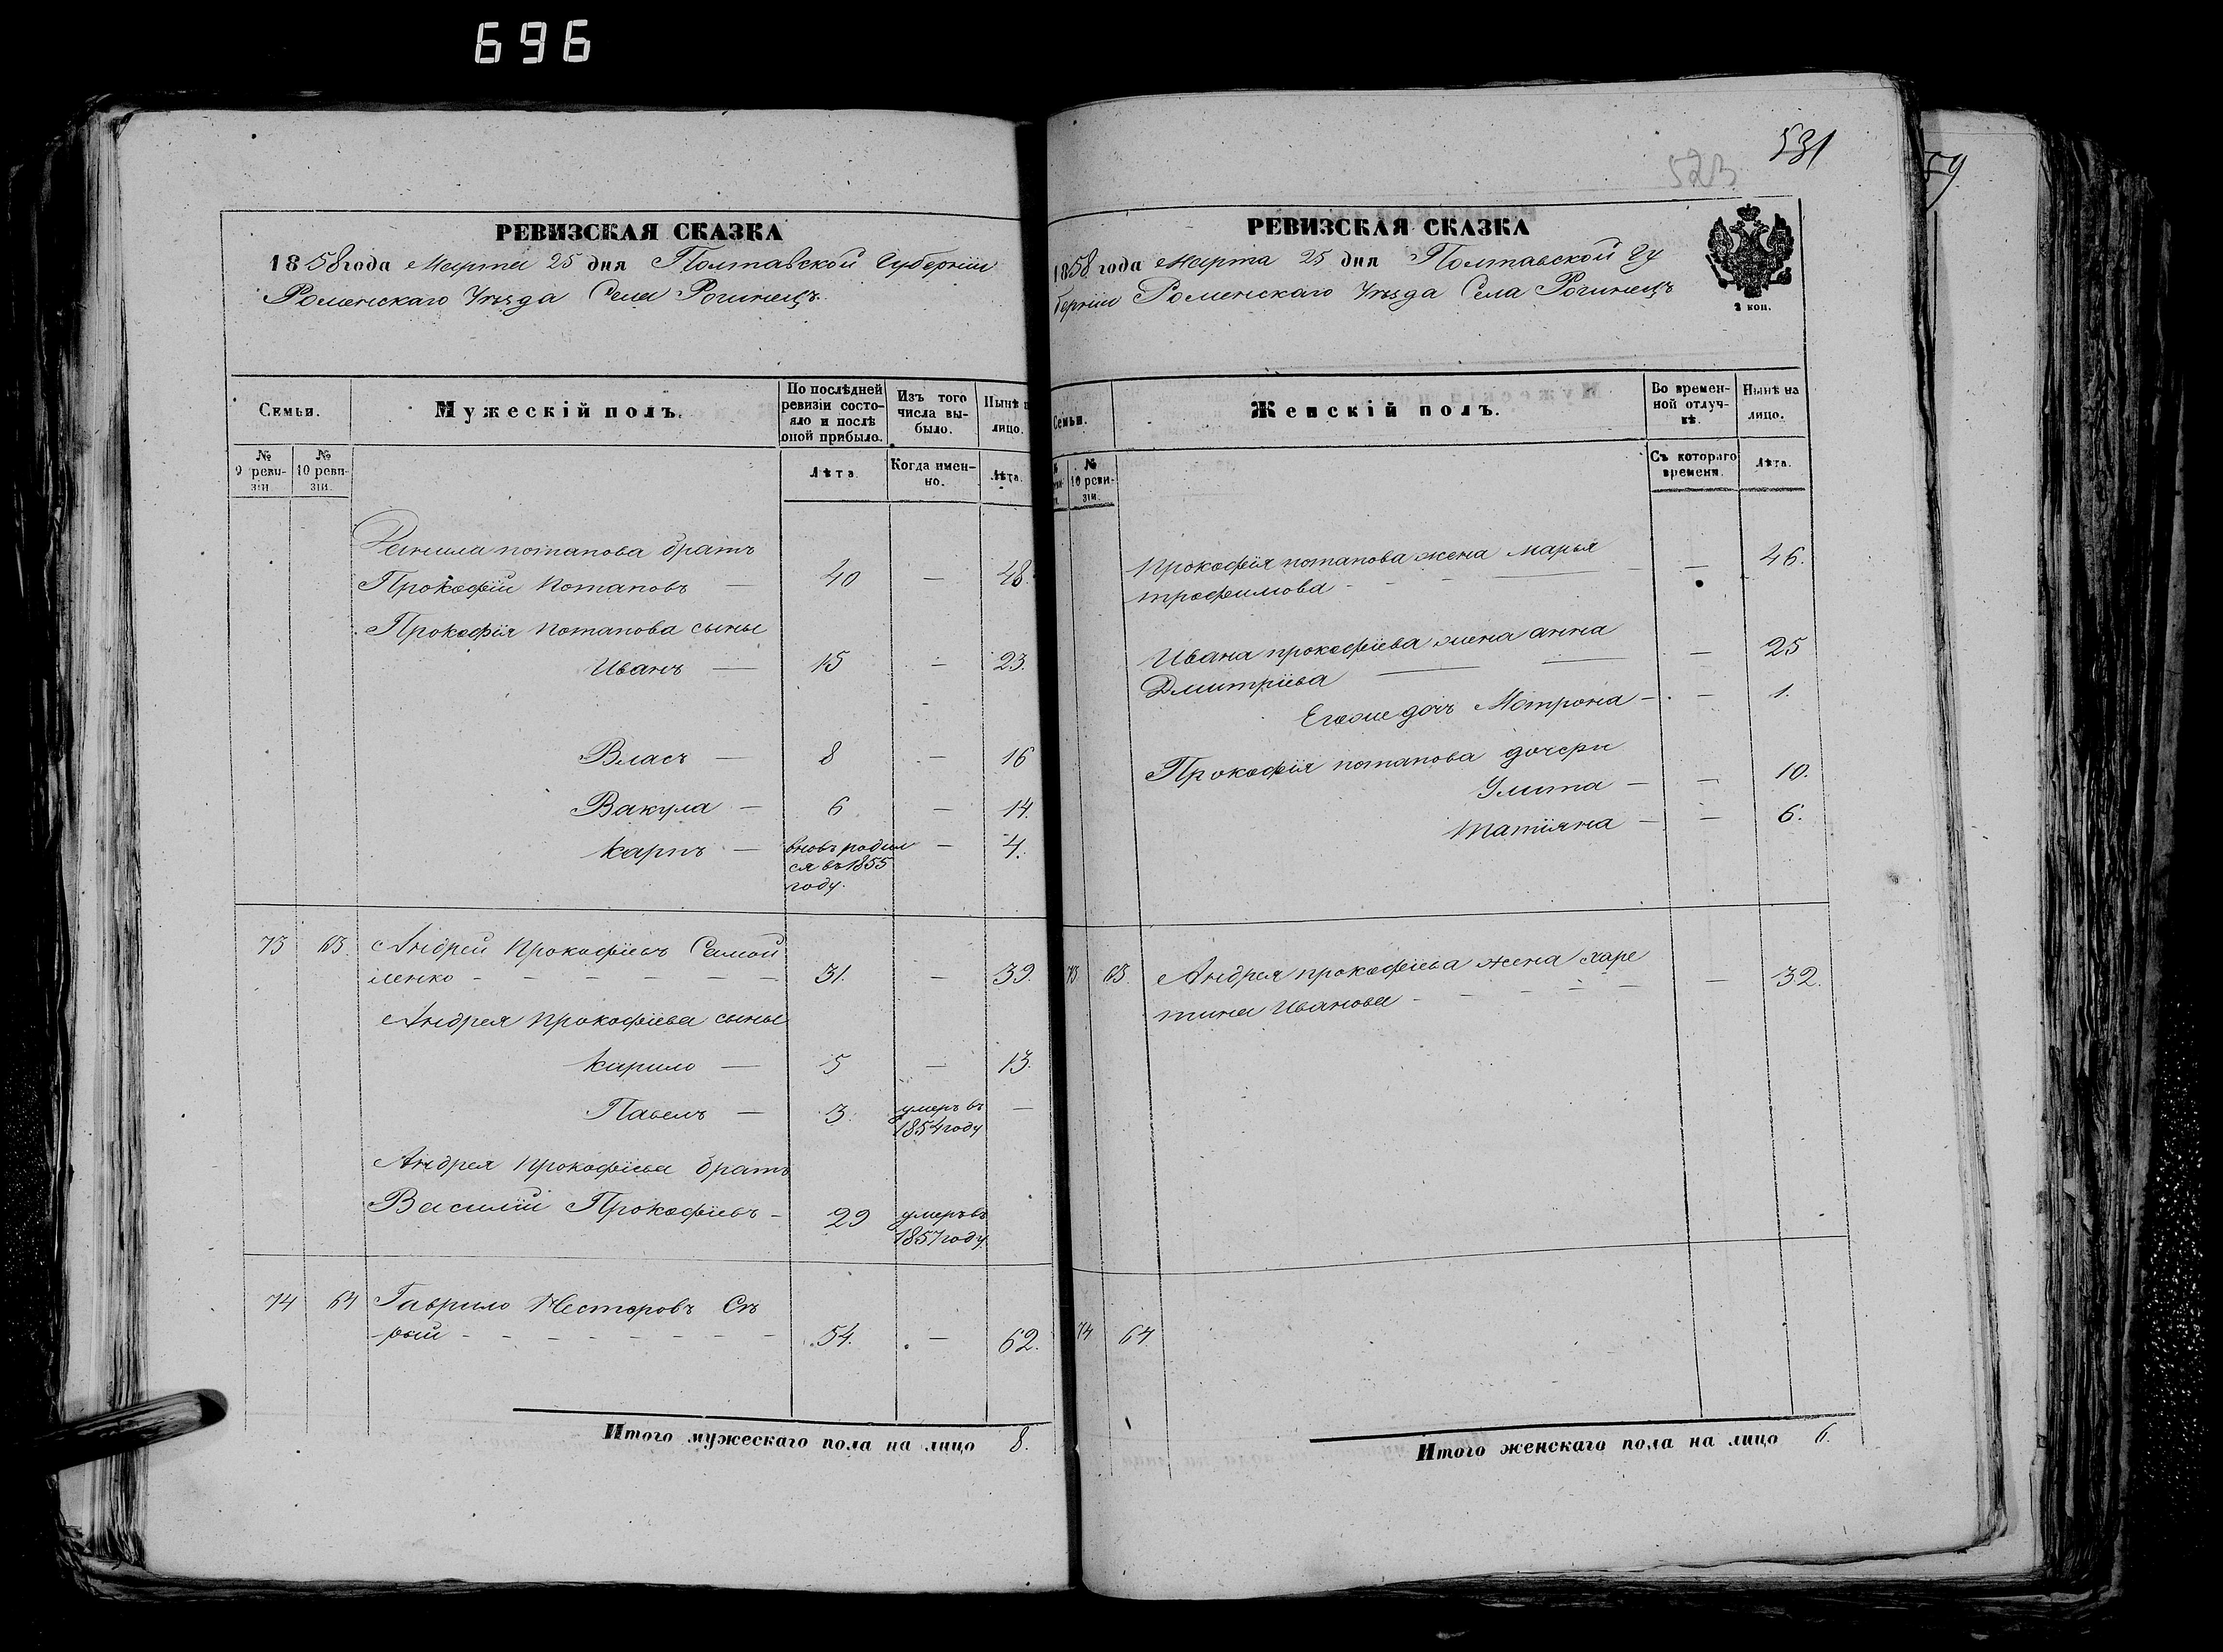 696
РЕВИЗСКАЯ СКАЗКА
1858 года Марта 25 дня Полтавской Губернiи
Роменскаго Уѣзда Села Рогинецъ.
Семьи.
Мужескій полъ.
По послѣдней ревизіи состояло и послѣ оной прибыло.
Изъ того числа выбыло.
Нынѣ
лицо.
№ 9 ревизіи
№ 10 ревизіи.
Лѣта
Когда именно.
Лѣта.
Данила потапова братъ
Прокофiй Потаповъ — 40 — 48.
Прокофiя Потапова сыны
Иванъ — 15 — 23.
Власъ — 8 — 16
Вакула — 6 — 14.
Карпъ — вновь родил — 4.
ся въ 1855
году.
73 63. Андрей Прокофiевъ Самой
ленко - - - - - 31. — 39.
Андрея Прокофiева сыны
Кирило — 5 — 13.
Павелъ — 3. умеръ въ —
1854 году
Андрея Прокофiева братъ
Василiй Прокофiевъ - 29 умеръ въ
1857 году.
74 64 Гаврило Нестеровъ Сѣ
рый - - - - - - - 54. — 62.
Итого мужескаго пола на лицо 8.
531
523
59
РЕВИЗСКАЯ СКАЗКА
1858 года Марта 25 дня Полтавской Гу
бернiи Роменскаго Уѣзда Села Рогинецъ
2 коп.
Семьи.
Женскій полъ.
Во временной отлучкѣ.
Нынѣ на лицо.
№ 10 ревизіи.
Съ котораго времени.
Лѣта.
Прокофiя потапова жена марья — 46.
трофимова - - -
Ивана прокофiева жена анна — 25
Дмитрiева — —
Егоже дочь Мотрона — — 1.
Прокофiя потапова дочери
Улита — — 10.
Татiяна — — 6.
73 63. Андрея прокофiева жена харе — 32.
тина Иванова - - - -
74 64.
Итого женскаго пола на лицо 6.